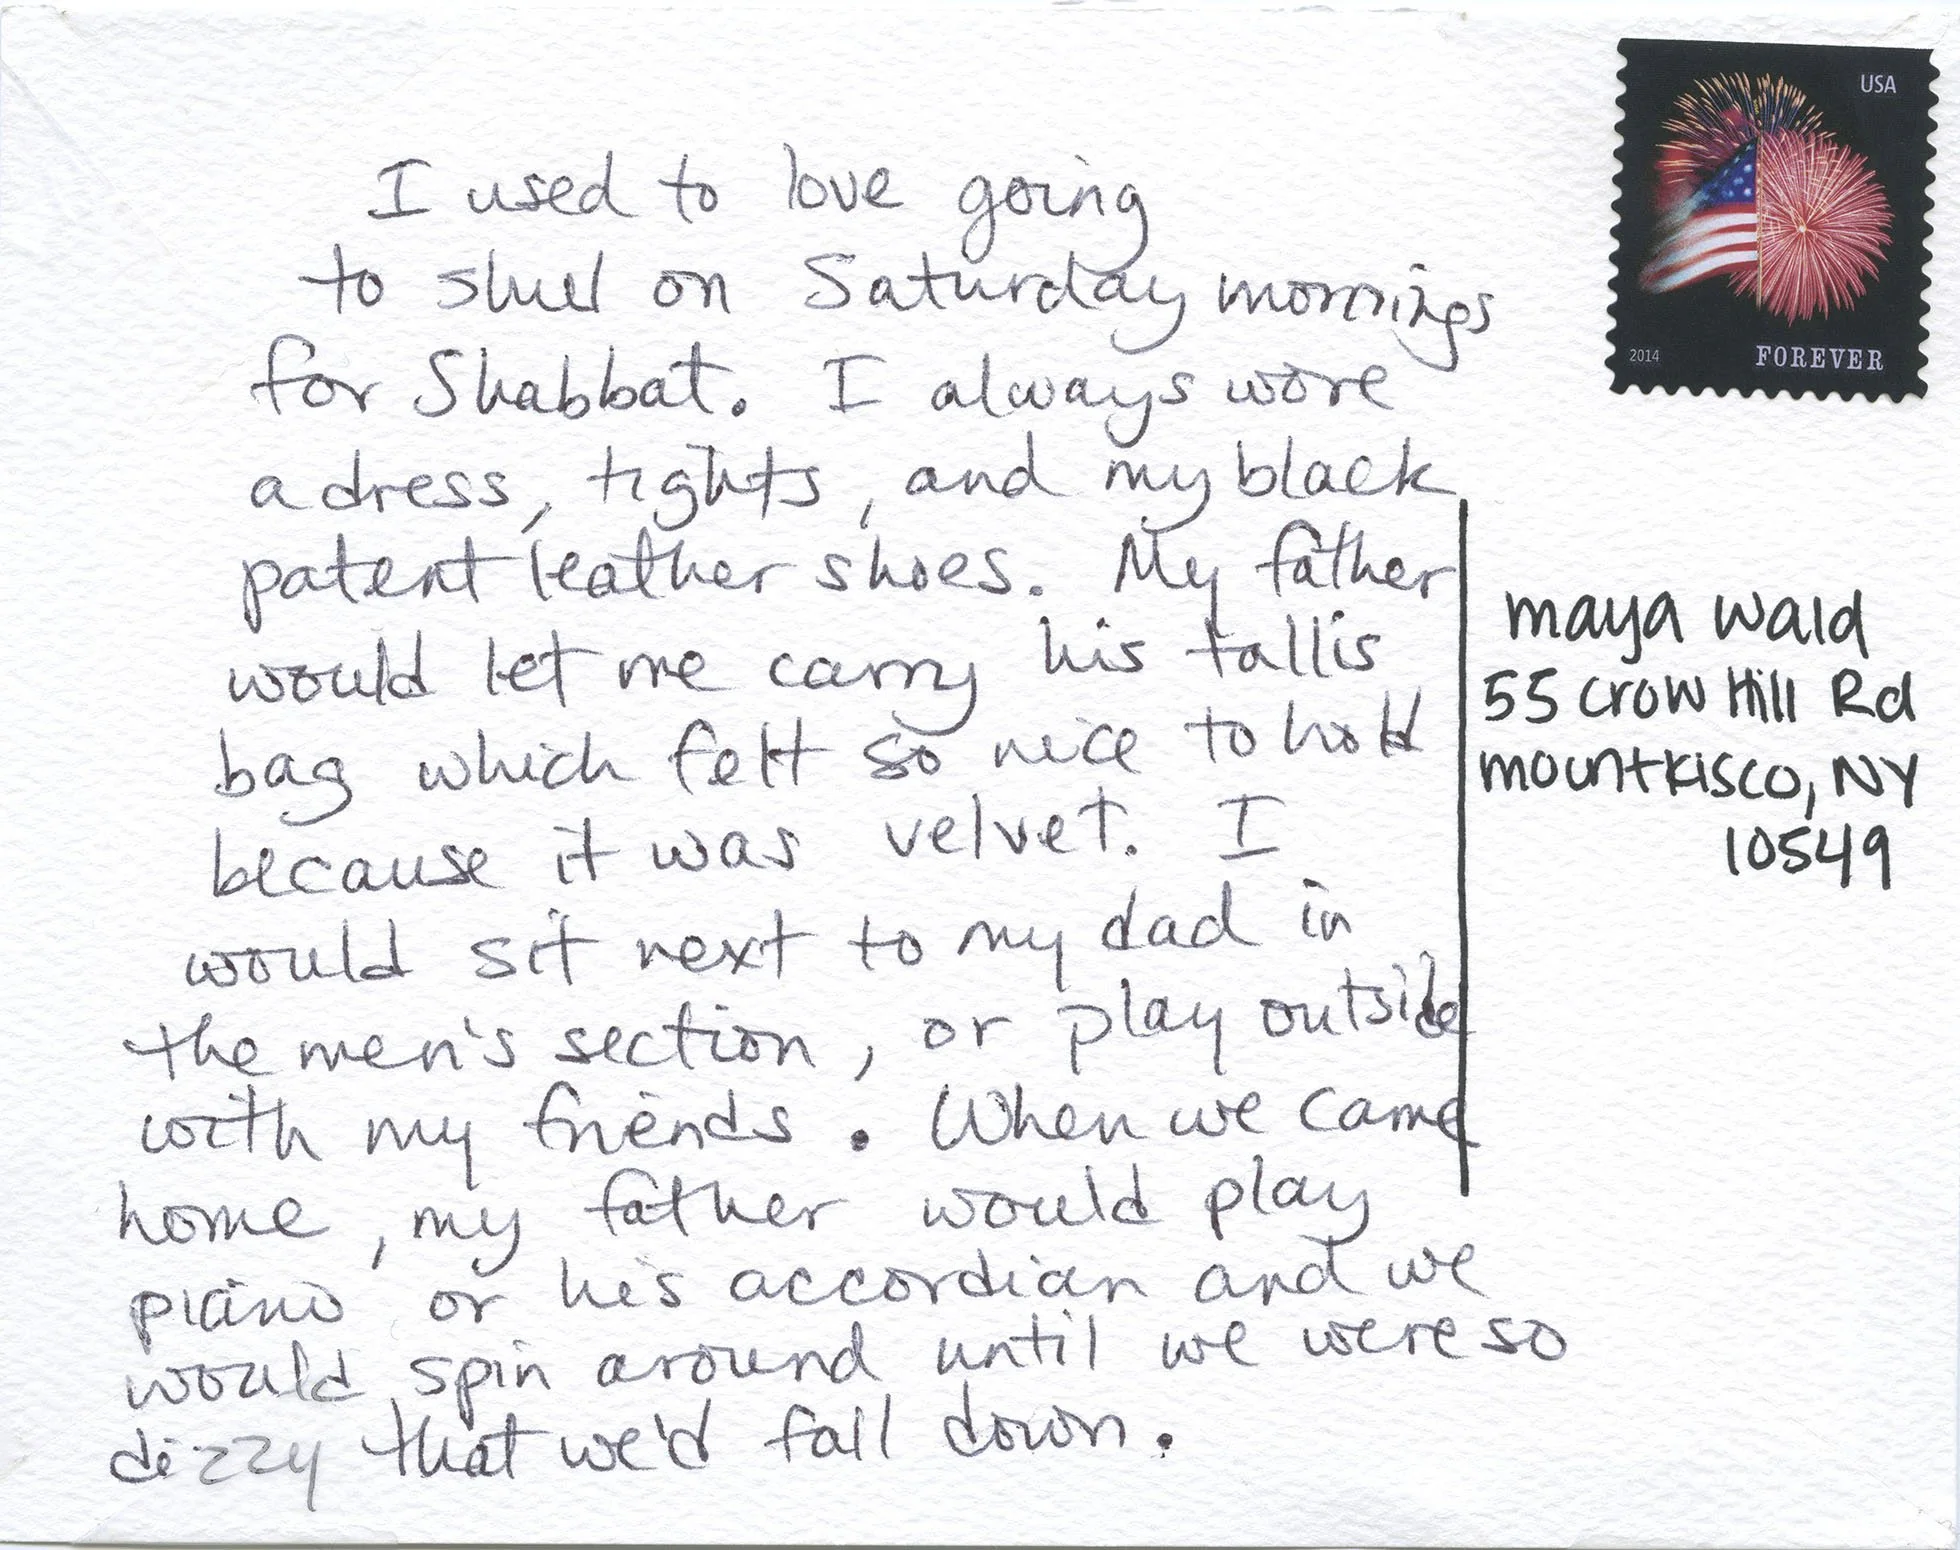 I used to love going
to shul on Saturday mornings
for Shabbat. I always wore
a dress, tights, and my black
patent leather shoes. My father
would let me carry his tallis
bag which felt so nice to hold
because it was velvet. I
would sit next to my dad in
the men's section, or play outside
with my friends. When we came
home, my father would play
piano or his accordian and we
would spin around until we were so
dizzy that we'd fall down.
USA
2014 FOREVER
maya wald
55 crow Hill Rd
mountkisco, NY
10549